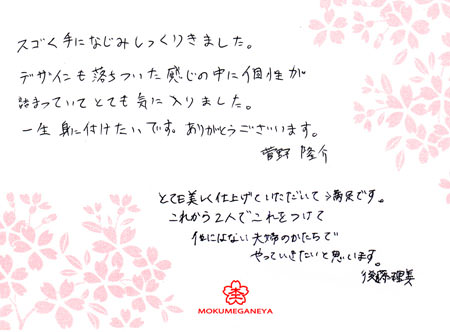 スゴく手になじみしっくりきました。
デザインも落ちついた感じの中に個性が
詰まっていてとても気に入りました。
一生身に付けたいです。ありがとうございます。
菅野 隆介
とても美しく仕上げていただいて満足です。
これから2人でこれをつけて
他にはない夫婦のかたちで
やっていきたいと思います。
後藤理美
MOKUMEGANEYA